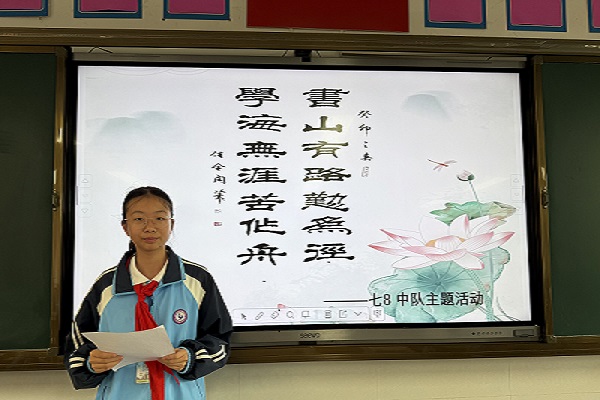 癸卯之春
書山有路勤爲徑
學海無涯苦作舟
——七8 中队主题活动
seewo